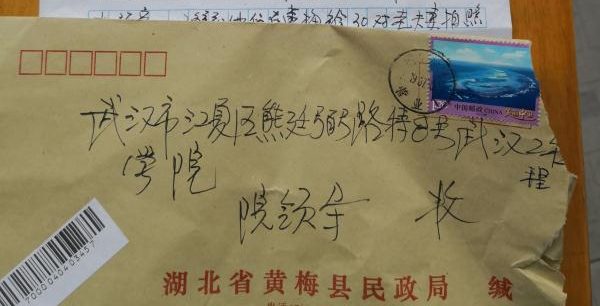 给30对老夫妻拍照
中国邮政 CHINA
武汉市江夏区熊廷弼路特1号武汉工程
学院
院领导 收
湖北省黄梅县民政局 缄